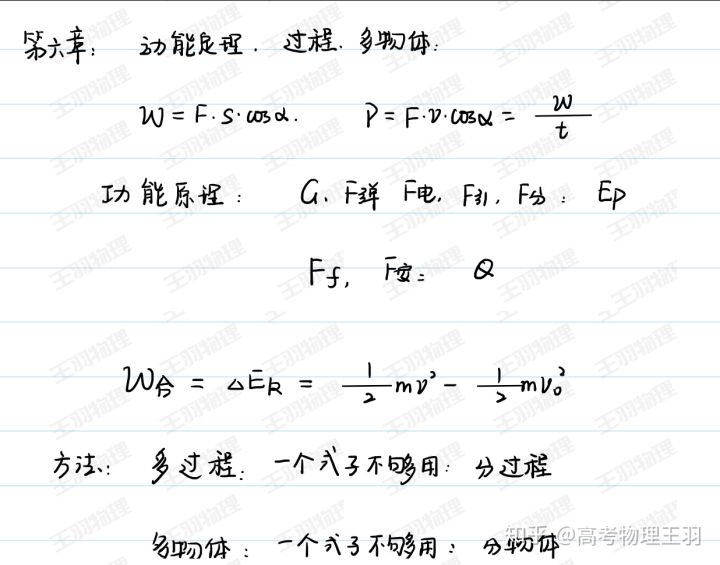 第六章: 动能定理. 过程. 多物体:
W = F·S·cosα. P = F·v·cosα = W/t
功能原理: G、F弹 F电, F引, F分: Ep
Ff, F安: Q
W合 = △Ek = 1/2 mv² - 1/2 mv₀²
方法: 多过程: 一个式子不够用: 分过程
多物体: 一个式子不够用: 分物体
知乎 @高考物理王羽
王羽物理